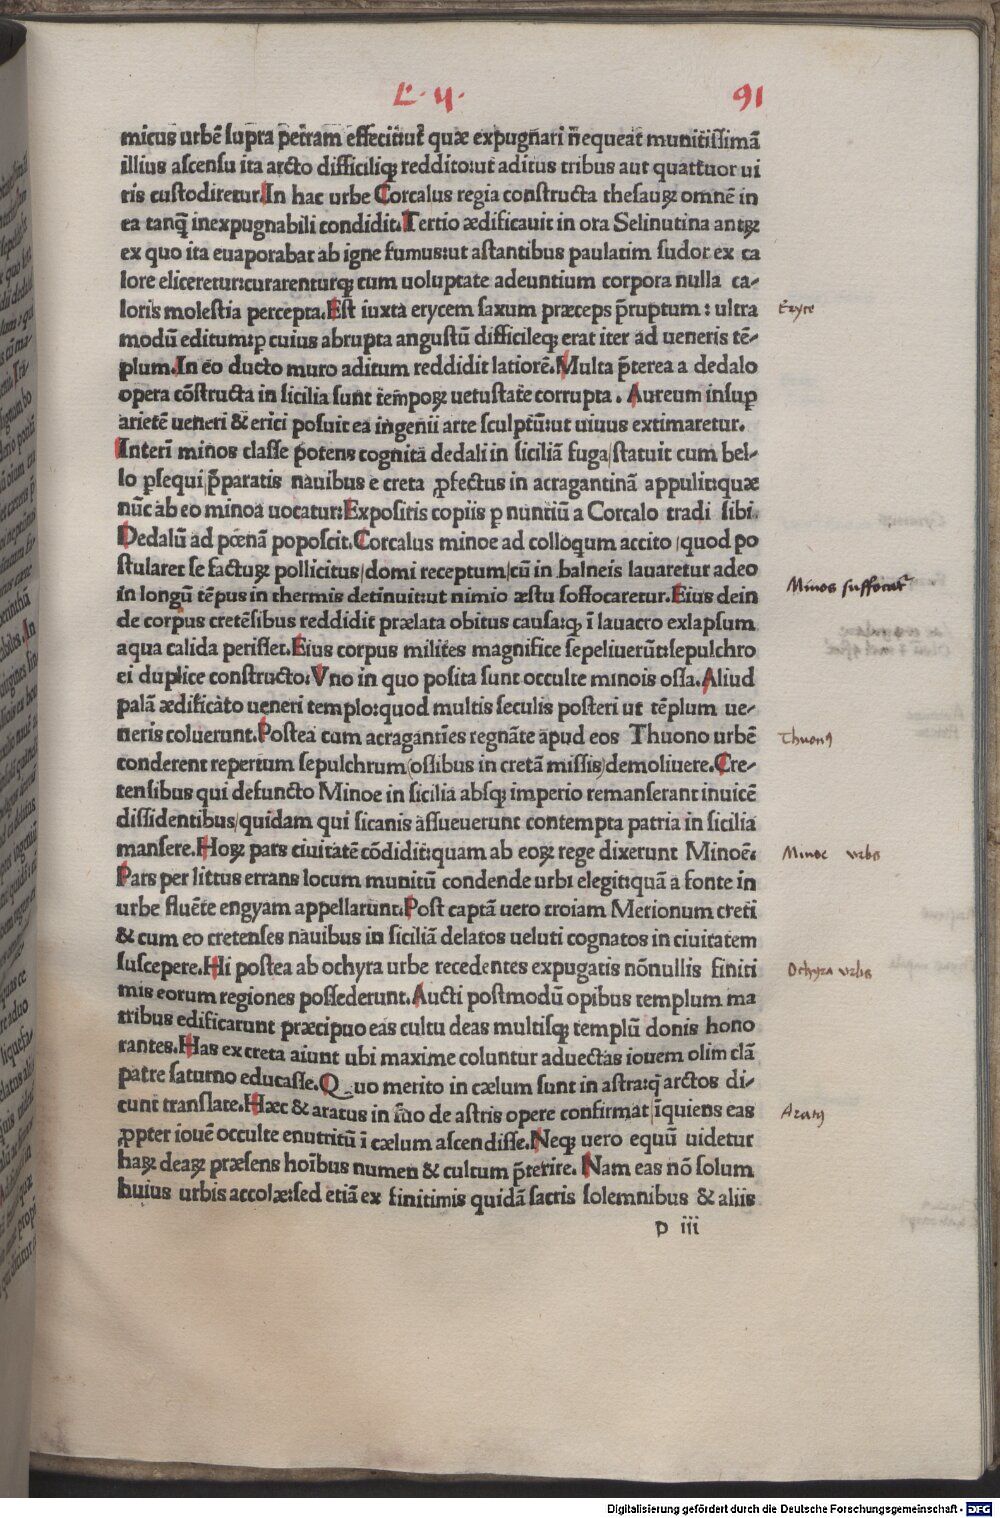 L. 4. 91
micus urbē supra petram effecit:ut quæ expugnari neqeat munitissimā
illius ascensu ita arcto difficiliqꝫ reddito:ut aditus tribus aut quattuor ui
ris custodiretur.In hac urbe Corcalus regia constructa thesauꝝ omnē in
ea tanq̄ inexpugnabili condidit.Tertio ædificauit in ora Selinutina antꝝ
ex quo ita euaporabat ab igne fumus:ut astantibus paulatim sudor ex ca
lore eliceretur:curarenturqꝫ cum uoluptate adeuntium corpora nulla ca-
loris molestia percepta.Est iuxta erycem saxum præceps p̄ruptum: ultra Eryce
modū editum:ꝑ cuius abrupta angustū difficileqꝫ erat iter ad ueneris tē-
plum.In eo ducto muro aditum reddidit latiorē.Multa p̄terea a dedalo
opera cōstructa in sicilia sunt tempoꝝ uetustate corrupta. Aureum insuꝑ
arietē ueneri & erici posuit ea ingenii arte sculptū:ut uiuus extimaretur.
Interī minos classe potens cognita dedali in siciliā fuga/statuit cum bel-
lo ꝑsequi/p̄paratis nauibus e creta ꝓfectus in acragantinā appulit:quæ
nūc ab eo minoa uocatur:Expositis copiis ꝑ nuntiū a Corcalo tradi sibi
Dedalū ad pœnā poposcit.Corcalus minoe ad colloqum accito/quod po
stularet se factuꝝ pollicitus/domi receptum/cū in balneis lauaretur adeo
in longū tēpus in thermis detinuit:ut nimio æstu soffocaretur.Eius dein Minos suffocatᷣ
de corpus cretēsibus reddidit prælata obitus causa:qꝫ ī lauacro exlapsum
aqua calida perisset.Eius corpus milites magnifice sepeliuerūt:sepulchro
ei duplice constructo:Vno in quo posita sunt occulte minois ossa.Aliud
palā ædificato ueneri templo:quod multis seculis posteri ut tēplum ue-
neris coluerunt.Postea cum acragantīes regnāte apud eos Thuono urbē Thuonꝰ
conderent repertum sepulchrum(ossibus in cretā missis)demoliuere.Cre-
tensibus qui defuncto Minoe in sicilia absqꝫ imperio remanserant inuicē
dissidentibus/quidam qui sicanis assueuerunt contempta patria in sicilia
mansere.Hoꝝ pars ciuitatē cōdidit:quam ab eoꝝ rege dixerunt Minoē. Minoe urbs
Pars per littus errans locum munitū condende urbi elegit:quā a fonte in
urbe fluēte engyam appellarunt.Post captā uero troiam Merionum creti
& cum eo cretenses nauibus in siciliā delatos ueluti cognatos in ciuitatem
suscepere.Hi postea ab ochyra urbe recedentes expugatis nōnullis finiti Ochyra urbs
mis eorum regiones possederunt.Aucti postmodū opibus templum ma
tribus edificarunt præcipuo eas cultu deas multisqꝫ templū donis hono
rantes.Has ex creta aiunt ubi maxime coluntur aduectas iouem olim clā
patre saturno educasse.Quo merito in cælum sunt in astra:q̄ arctos di-
cunt translate.Hæc & aratus in suo de astris opere confirmat īquiens eas Aratꝰ
ꝓpter iouē occulte enutritū ī cælum ascendisse.Neqꝫ uero equū uidetur
haꝝ deaꝝ præsens hoībus numen & cultum p̄terire. Nam eas nō solum
huius urbis accolæ:sed etiā ex finitimis quidā sacris solemnibus & aliis
p iii
Digitalisierung gefördert durch die Deutsche Forschungsgemeinschaft - DFG